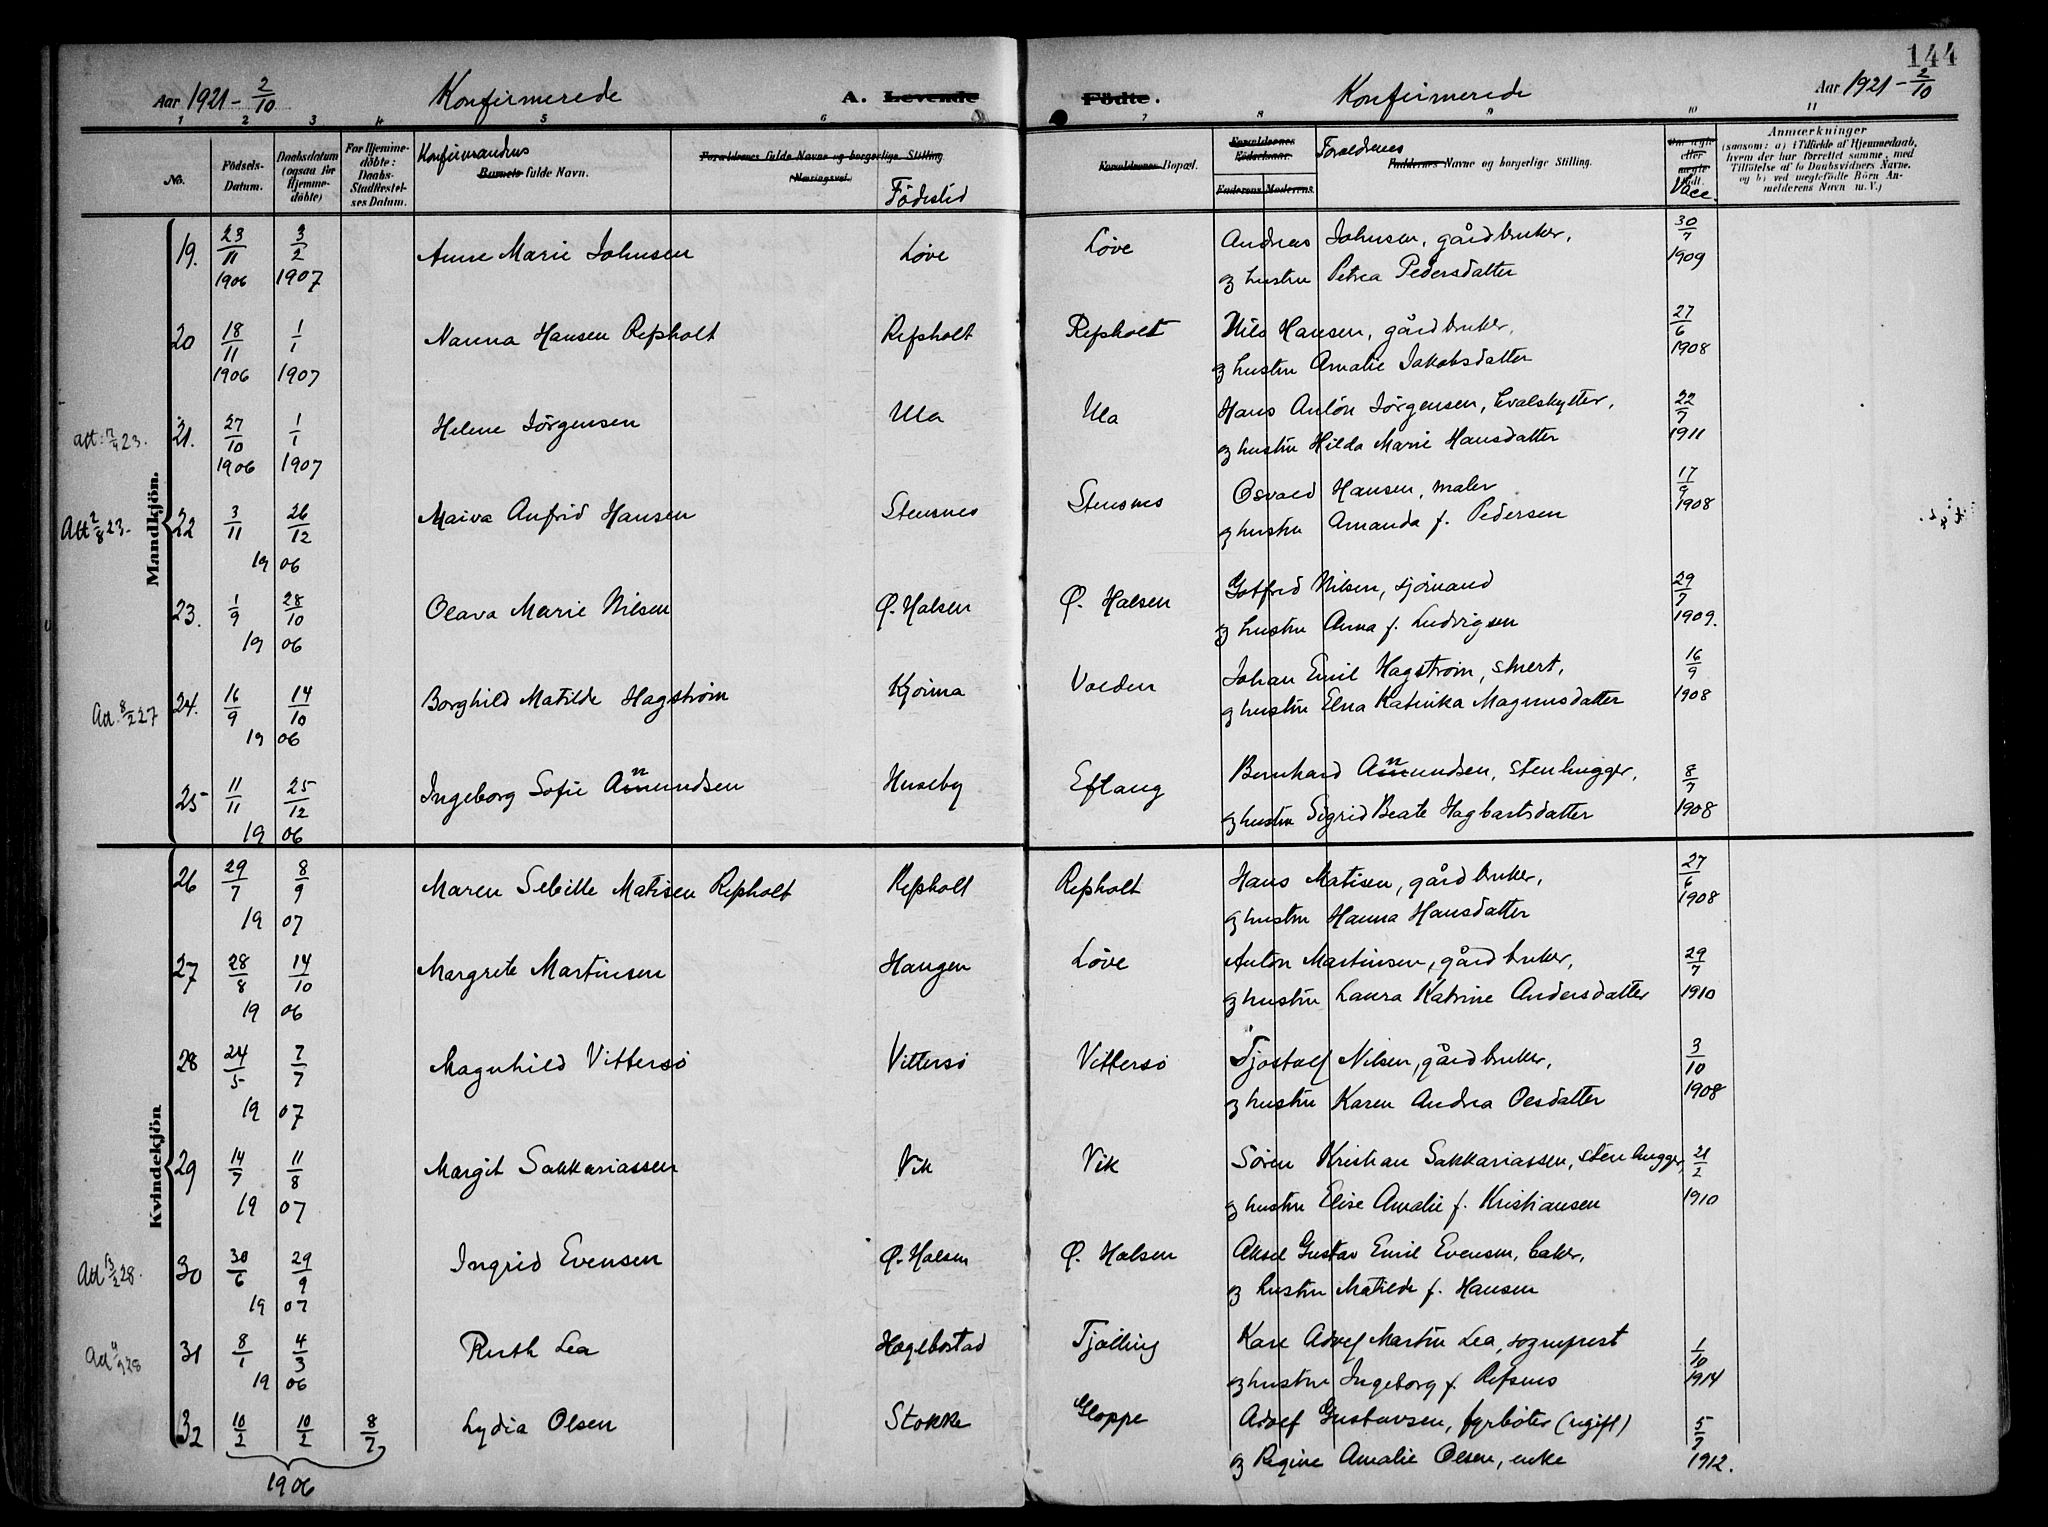 144
Aar 1921 - 2/10 Konfirmerede A. Levende Födte. Konfirmerede Aar 1921 - 2/10
1 2 3 4 5 6 7 8 9 10 11
No. Födsels-Datum. Daabsdatum (ogsaa för Hjemme-döbte) For Hjemme-döbte: Daabs-Stadfæstel-ses Datum. Konfirmandens Barnets fulde Navn. Forældrenes fulde Navne og borgerlige Stilling (Næringsvei.) Födested Forældrenes Bopæl. Forældrenes Födselsaar. Faderens Moderens Forældrenes Fadderes Navne og borgerlige Stilling. Vacc. Anmærkninger (saasom: a) i Tilfælde af Hjemmedaab, hvem der har forrettet samme, med Tilföielse af to Daabsvidners Navne, og b) ved uegtefödte Börn An-melderens Navn m. V.)
Mandkjön.
19. 23/11 3/2 Anne Marie Johnsen Løve Løve Andreas Johnsen, gårdbruker, 30/7
1906 1907 og hustru Petrea Pedersdatter 1909
20 18/11 1/1 Nanna Hansen Repholt Repholt Repholt Nils Hansen, gårdbruker, 27/6
1906 1907 og hustru Amalie Jakobsdatter 1908
21. 27/10 1/1 Helene Jörgensen Ula Ula Hans Anton Jörgensen, hvalskytter, 22/9
1906 1907 og hustru Hilda Marie Hansdatter 1911
Att 2/8 23. 22 3/11 26/12 Maiva Anfrid Hansen Stensnes Stensnes Osvald Hansen, maler 17/9
19 06 og hustru Amanda f. Pedersen 1908
23. 1/9 28/10 Olava Marie Nilsen Ø. Halsen Ø. Halsen Gotfred Nilsen, sjömand 29/7
19 06 og hustru Anna f. Ludvigsen 1909.
Att. 8/2 27 24. 16/9 14/10 Borghild Matilde Hagström Kjörna Valden Johan Emil Hagström, smed, 16/9
19 06 og hustru Elna Katinka Magnusdatter 1908
25 11/11 25/12 Ingeborg Sofie Anundsen Huseby Eftang Bernhard Anundsen, stenhugger, 8/7
19 06 og hustru Sigrid Beate Hagbartsdatter 1908
Kvindekjön
26 29/7 8/9 Maren Sebille Matisen Repholt Repholt Repholt Hans Matisen, gårdbruker, 27/6
19 07 og hustru Hanna Hansdatter 1908
27 28/8 14/10 Margrete Martinsen Haugen Løve Anton Martinsen, gårdbruker, 29/7
19 06 og hustru Laura Katrine Andersdatter 1910
28 24/5 7/7 Magnhild Vittersö Vittersö Vittersö Tjostolf Nilsen, gårdbruker, 3/10
19 07 og hustru Karen Andrea Olsdatter 1908
29 14/7 11/8 Margit Sakkariassen Vik Vik Sören Kristian Sakkariassen, stenhugger, 21/2
19 07 og hustru Elise Amalie f. Kristiansen 1910
Att 13/2 28. 30 30/6 29/9 Ingrid Evensen Ø. Halsen Ø. Halsen Aksel Gustav Emil Evensen, baker,
19 07 og hustru Matilde f. Hansen
31 8/1 4/3 Ruth Lea Hægebostad Tjølling Karl Adolf Martin Lea, sogneprest 1/10
19 06 og hustru Ingeborg f. Refsnes 1914
32 10/2 10/2 8/7 Lydia Olsen Stokke Gloppe Adolf Gustavsen, fyrböter (ugift) 5/7
1906 og Regine Amalie Olsen, enke 1912.